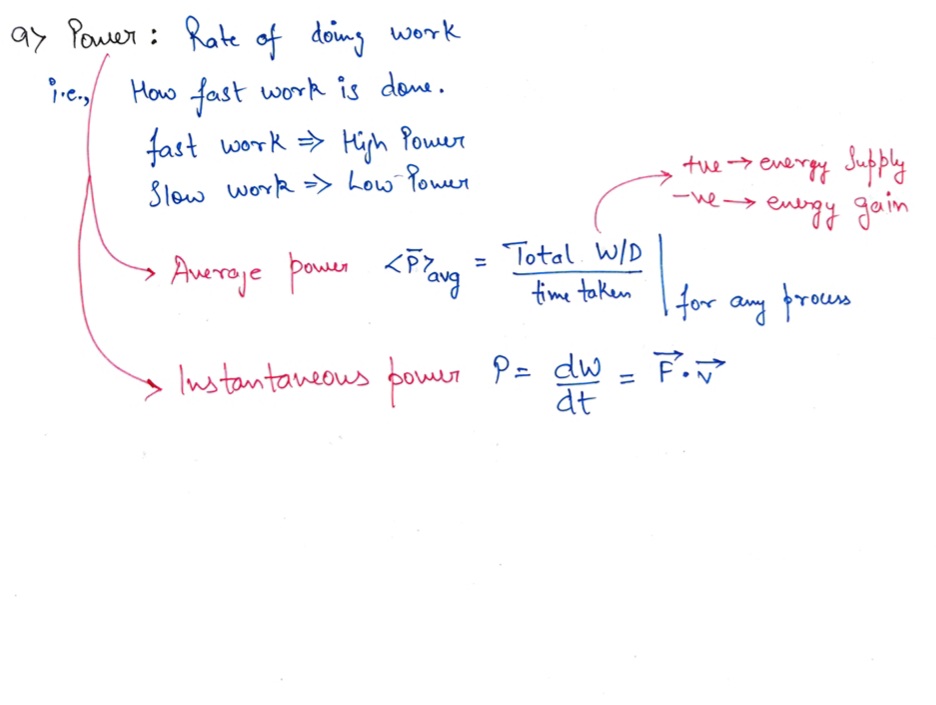 9> Power: Rate of doing work
i.e., How fast work is done.
fast work ⇒ High Power
Slow work ⇒ Low Power
+ve → energy Supply
-ve → energy gain
Average power <P̄>avg = Total W/D / time taken | for any process
Instantaneous power P = dW/dt = F⃗·v⃗